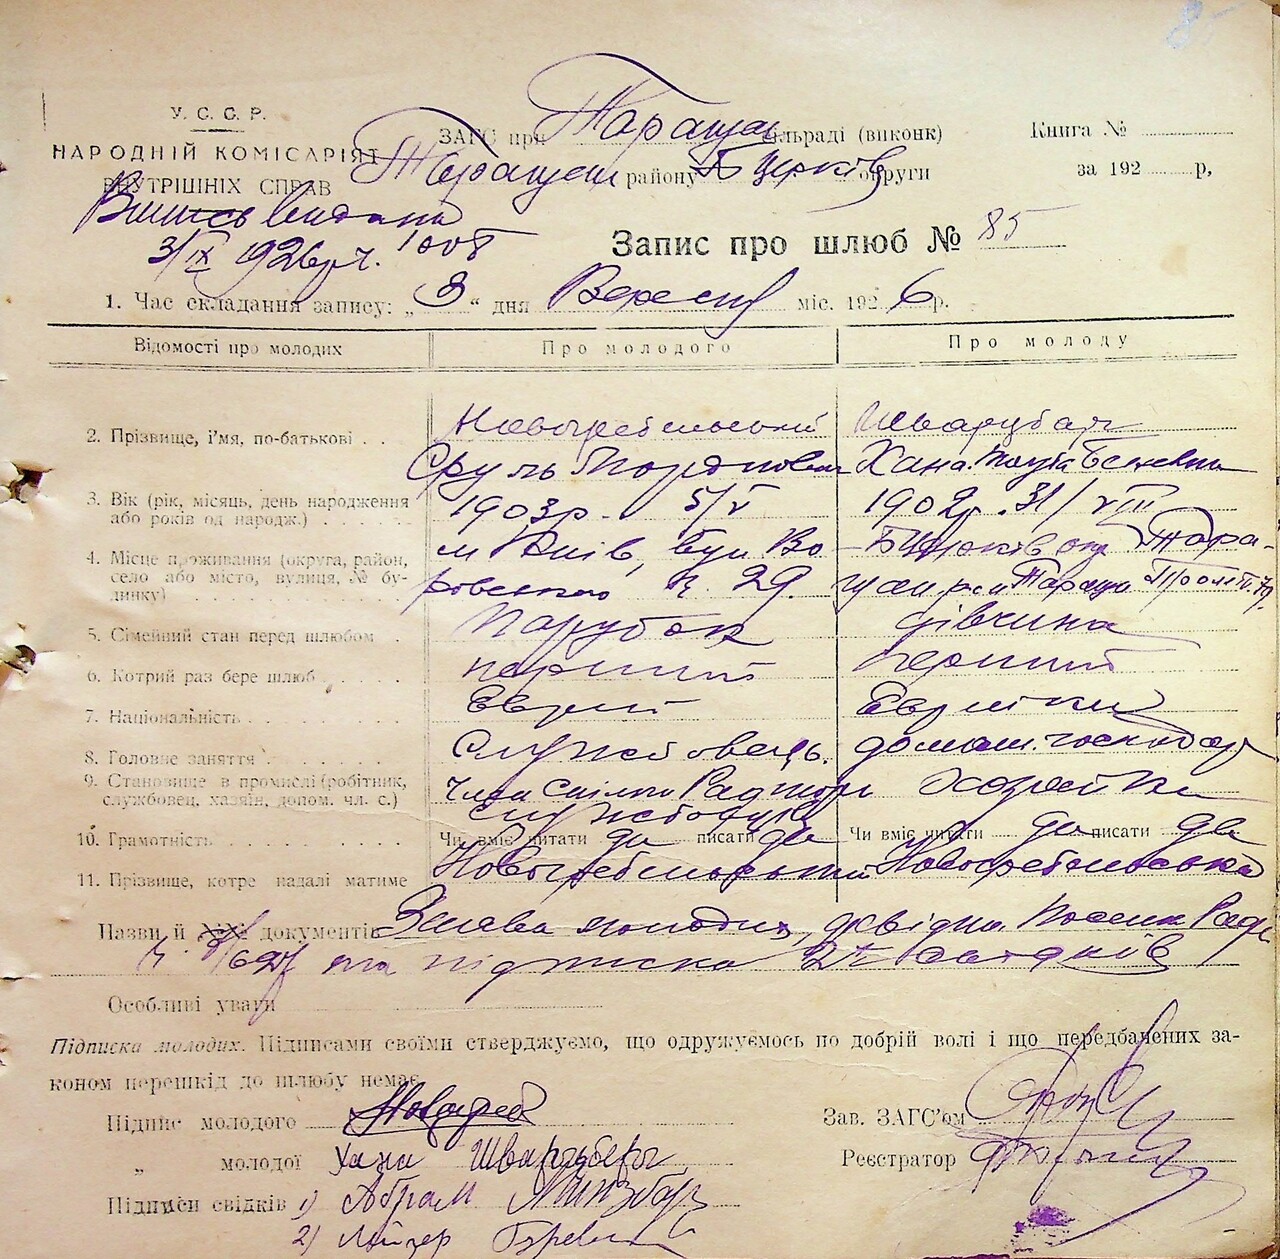 85
У. С. С. Р.
НАРОДНІЙ КОМІСАРІЯТ
ВНУТРІШНІХ СПРАВ
ЗАГС при Таращан сільраді (виконк)
Таращан району Б Церків округи
Книга №
за 192 р,
Випись видана
3/IX 1926 р ч.
Запис про шлюб № 85
1. Час складання запису: „3“ дня Вересня міс. 1926 р.
Відомості про молодих Про молодого Про молоду
2. Прізвище, і’мя, по-батькові . . Новогребельський Шварцбарг
Сруль Мордкович Хана
3. Вік (рік, місяць, день народження або років од народж.) 1903 р. 5/V 1902 р. 31/VIII
4. Місце проживання (округа, район, село або місто, вулиця, № будинку) м Київ, вул Во-
ровського № 29. Б Церків окр Тара-
щан р м Тараща
5. Сімейний стан перед шлюбом . Парубок дівчина
6. Котрий раз бере шлюб перший перший
7. Національність Єврей Єврейка
8. Головне заняття Службовець. домашн. господар
9. Становище в промислі (робітник, службовец, хазяїн, допом. чл. с.) Член спілки Радторг
службовців Хозяйка
10. Грамотність Чи вміє читати да писати да Чи вміє читати да писати да
11. Прізвище, котре надалі матиме Новогребельський Новогребельська
Назви й №№ документів Заява молодих, довідка
та підписка 2х свідків
Особливі уваги
Підписка молодих. Підписами своїми стверджуємо, що одружуємось по добрій волі і що передбачених за-
коном перешкід до шлюбу немає
Підпис молодого Новогреб
Зав. ЗАГС’ом
„ молодої Хана Шварцберг
Реєстратор
Підписи свідків 1) Абрам
2) Лейзер